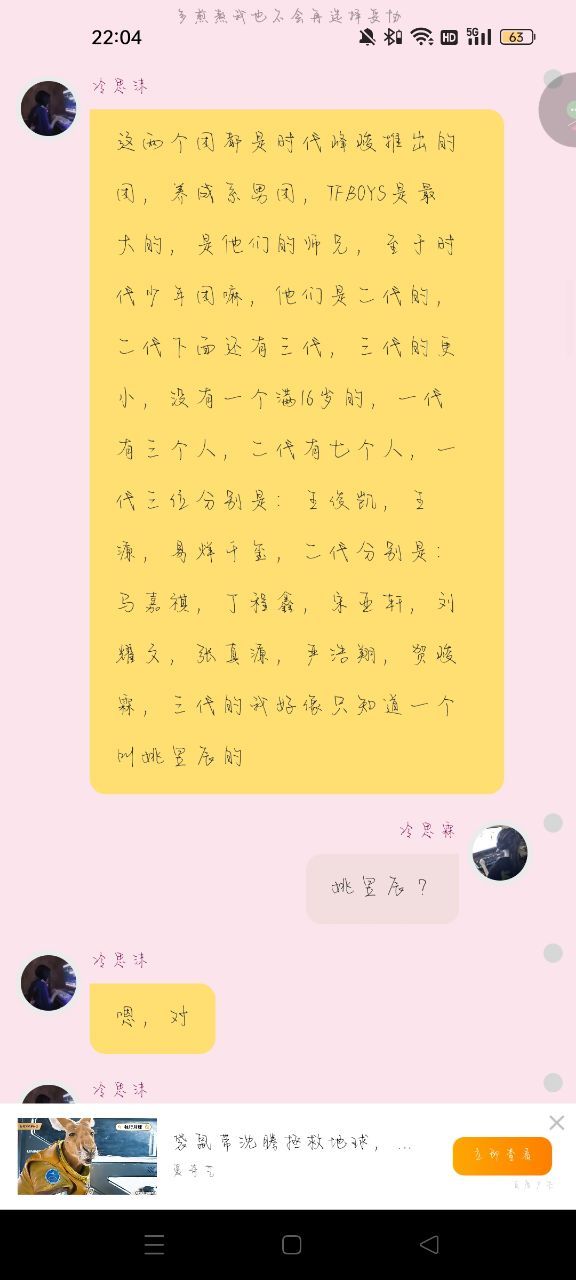 多煎熬我也不会再选择妥协
22:04
HD
5G
63
冷思沫
这两个团都是时代峰峻推出的
团，养成系男团，TFBOYS是最
大的，是他们的师兄，至于时
代少年团嘛，他们是二代的，
二代下面还有三代，三代的更
小，没有一个满16岁的，一代
有三个人，二代有七个人，一
代三位分别是：王俊凯，王
源，易烊千玺，二代分别是：
马嘉祺，丁程鑫，宋亚轩，刘
耀文，张真源，严浩翔，贺峻
霖，三代的我好像只知道一个
叫姚昱辰的
冷思霖
姚昱辰？
冷思沫
嗯，对
冷思沫
袋鼠带沈腾拯救地球，...
爱奇艺
立即查看